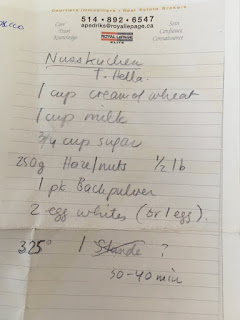 Courtiers Immobiliers - Real Estate Brokers
514 • 892 • 6547
apedriks@royallepage.ca
Care
Trust
Knowledge
ROYAL LEPAGE
ELITE
Soin
Confiance
Connaissance
Nusskuchen
T. Hella.
1 cup cream of wheat
1 cup milk
3/4 cup sugar
250g Hazelnuts 1/2 lb
1 pk Backpulver
2 egg whites (or 1 egg).
325° 1 Stunde ?
30-40 min